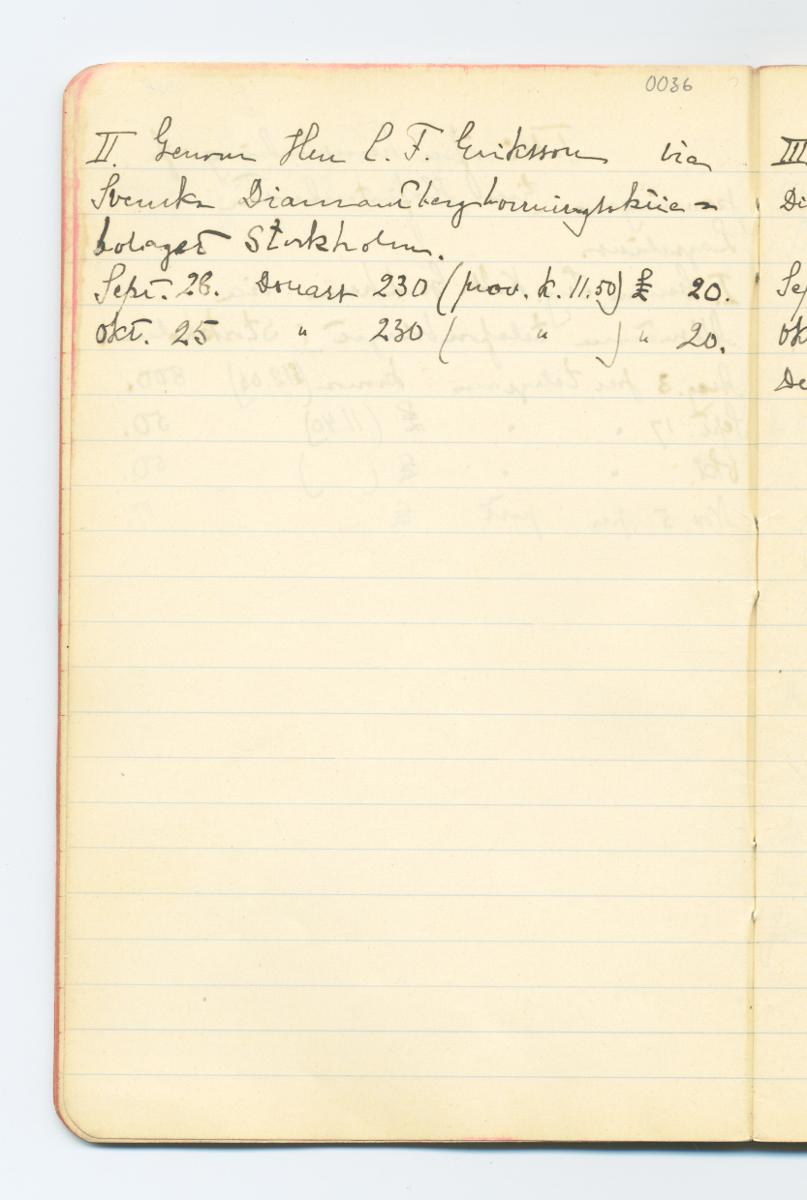 0036
II. Genom Herr C. F. Eriksson via
Svenska Diamantbergborrnings
bolaget Stockholm.
Sept. 28. 230 (prov. k. 11.50) £ 20.
Okt. 25 " 230 ( " ) " 20.
III
Di
Sep
Ok
De